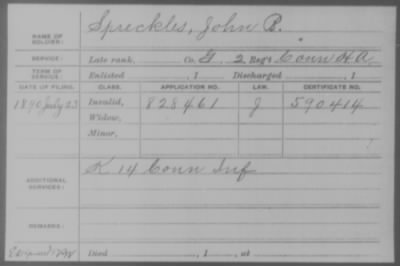 NAME OF SOLDIER: Spreckles, John B.
SERVICE: Late rank, Co. G, 2 Reg't Conn H.A.
TERM OF SERVICE: Enlisted , 1 Discharged , 1
DATE OF FILING. CLASS. APPLICATION NO. LAW. CERTIFICATE NO.
1890 July 23 Invalid, 828461 J 590414
Widow,
Minor,
ADDITIONAL SERVICES: K 14 Conn Inf
REMARKS:
Died , 1 , at